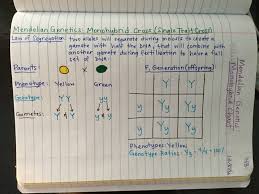 Mendelian Genetics: Monohybrid Cross (Single Trait Cross)
Law of Segregation: two alleles will separate during meiosis to create a
gamete with half the DNA, that will combine with
another gamete during fertilization to have a full
set of DNA.
Parents: x
F₁ Generation (offspring)
Phenotype: Yellow Green
Genotype: YY yy
Gametes: Y Y y y
Y Y
y Yy Yy
y Yy Yy
Phenotypes: Yellow
Genotype Ratios: Yy = 4/4 = 100%
Mendelian Genetics
Monohybrid